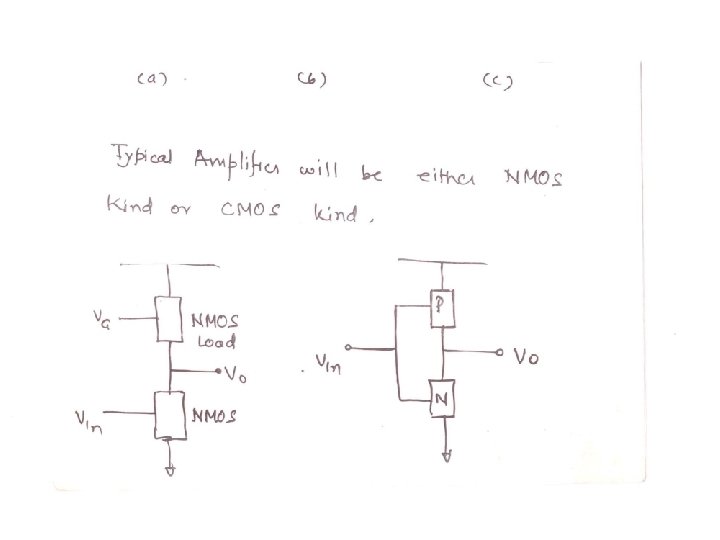 (a) (b) (c)
Typical Amplifier will be either NMOS
kind or CMOS kind.
VG NMOS
Load
Vo
Vin NMOS
P
Vin Vo
N